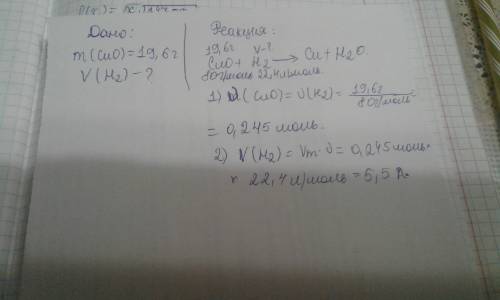 Дано:
m(CuO)=19,6г
V(H₂)-?
Реакция:
19,6г V-?
CuO + H₂ → Cu + H₂O.
80г/моль 22,4л/моль
1) ν(CuO) = ν(H₂) = 19,6г / 80г/моль
= 0,245 моль.
2) V(H₂) = Vm · ν = 0,245 моль ·
· 22,4 л/моль = 5,5 л.